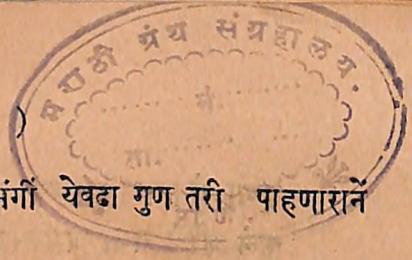 मराठी ग्रंथ संग्रहालय.
)
नं.
ता.
येवढा गुण तरी पाहणारानें